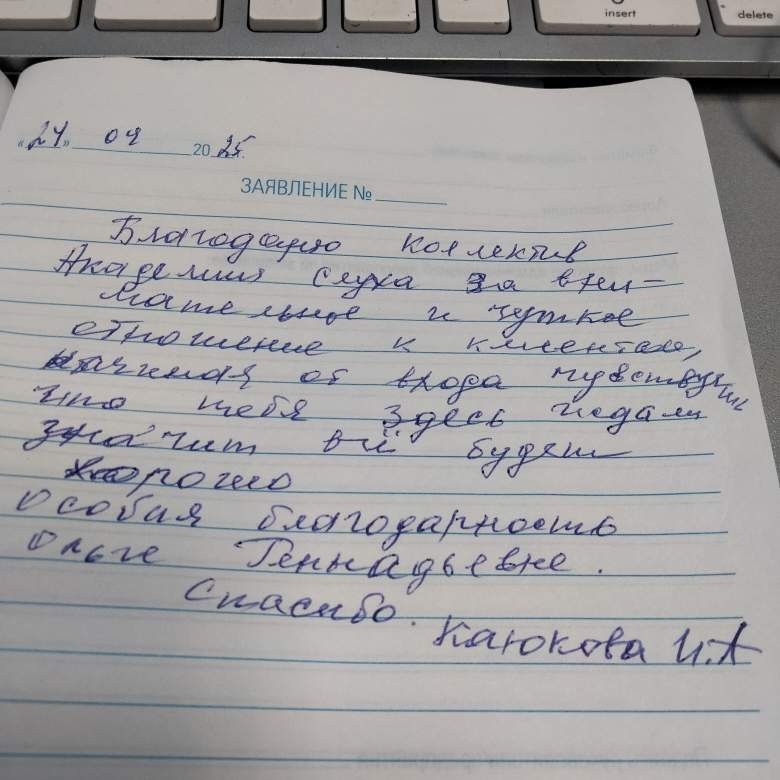 insert
delete
«24» 04 2025г.
ЗАЯВЛЕНИЕ №
Благодарю коллектив
Академии слуха за вни-
мательное и чуткое
отношение к клиентам,
начиная от входа чувствуешь
что тебя здесь ждали
значит всё будет
хорошо
Особая благодарность
Ольге Геннадьевне.
Спасибо.
Каюкова И.А